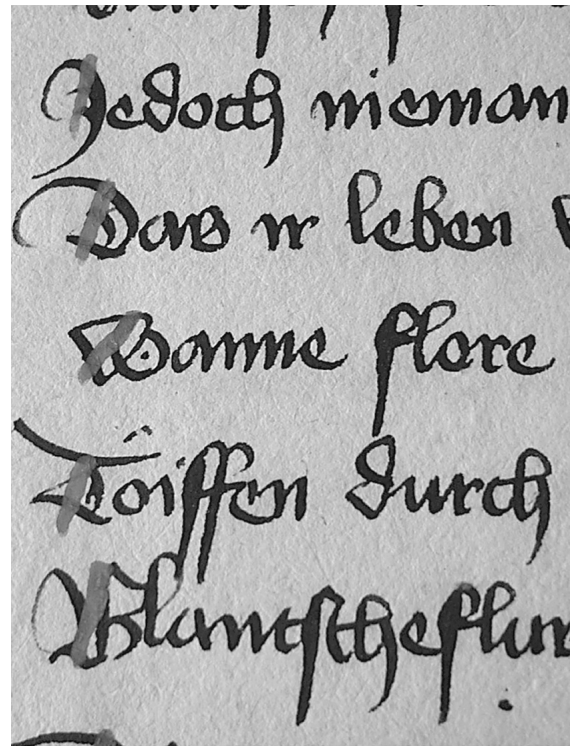 Jedoch nieman
Das ir leben
Wanne flore
Toiffen durch
Blantscheflur